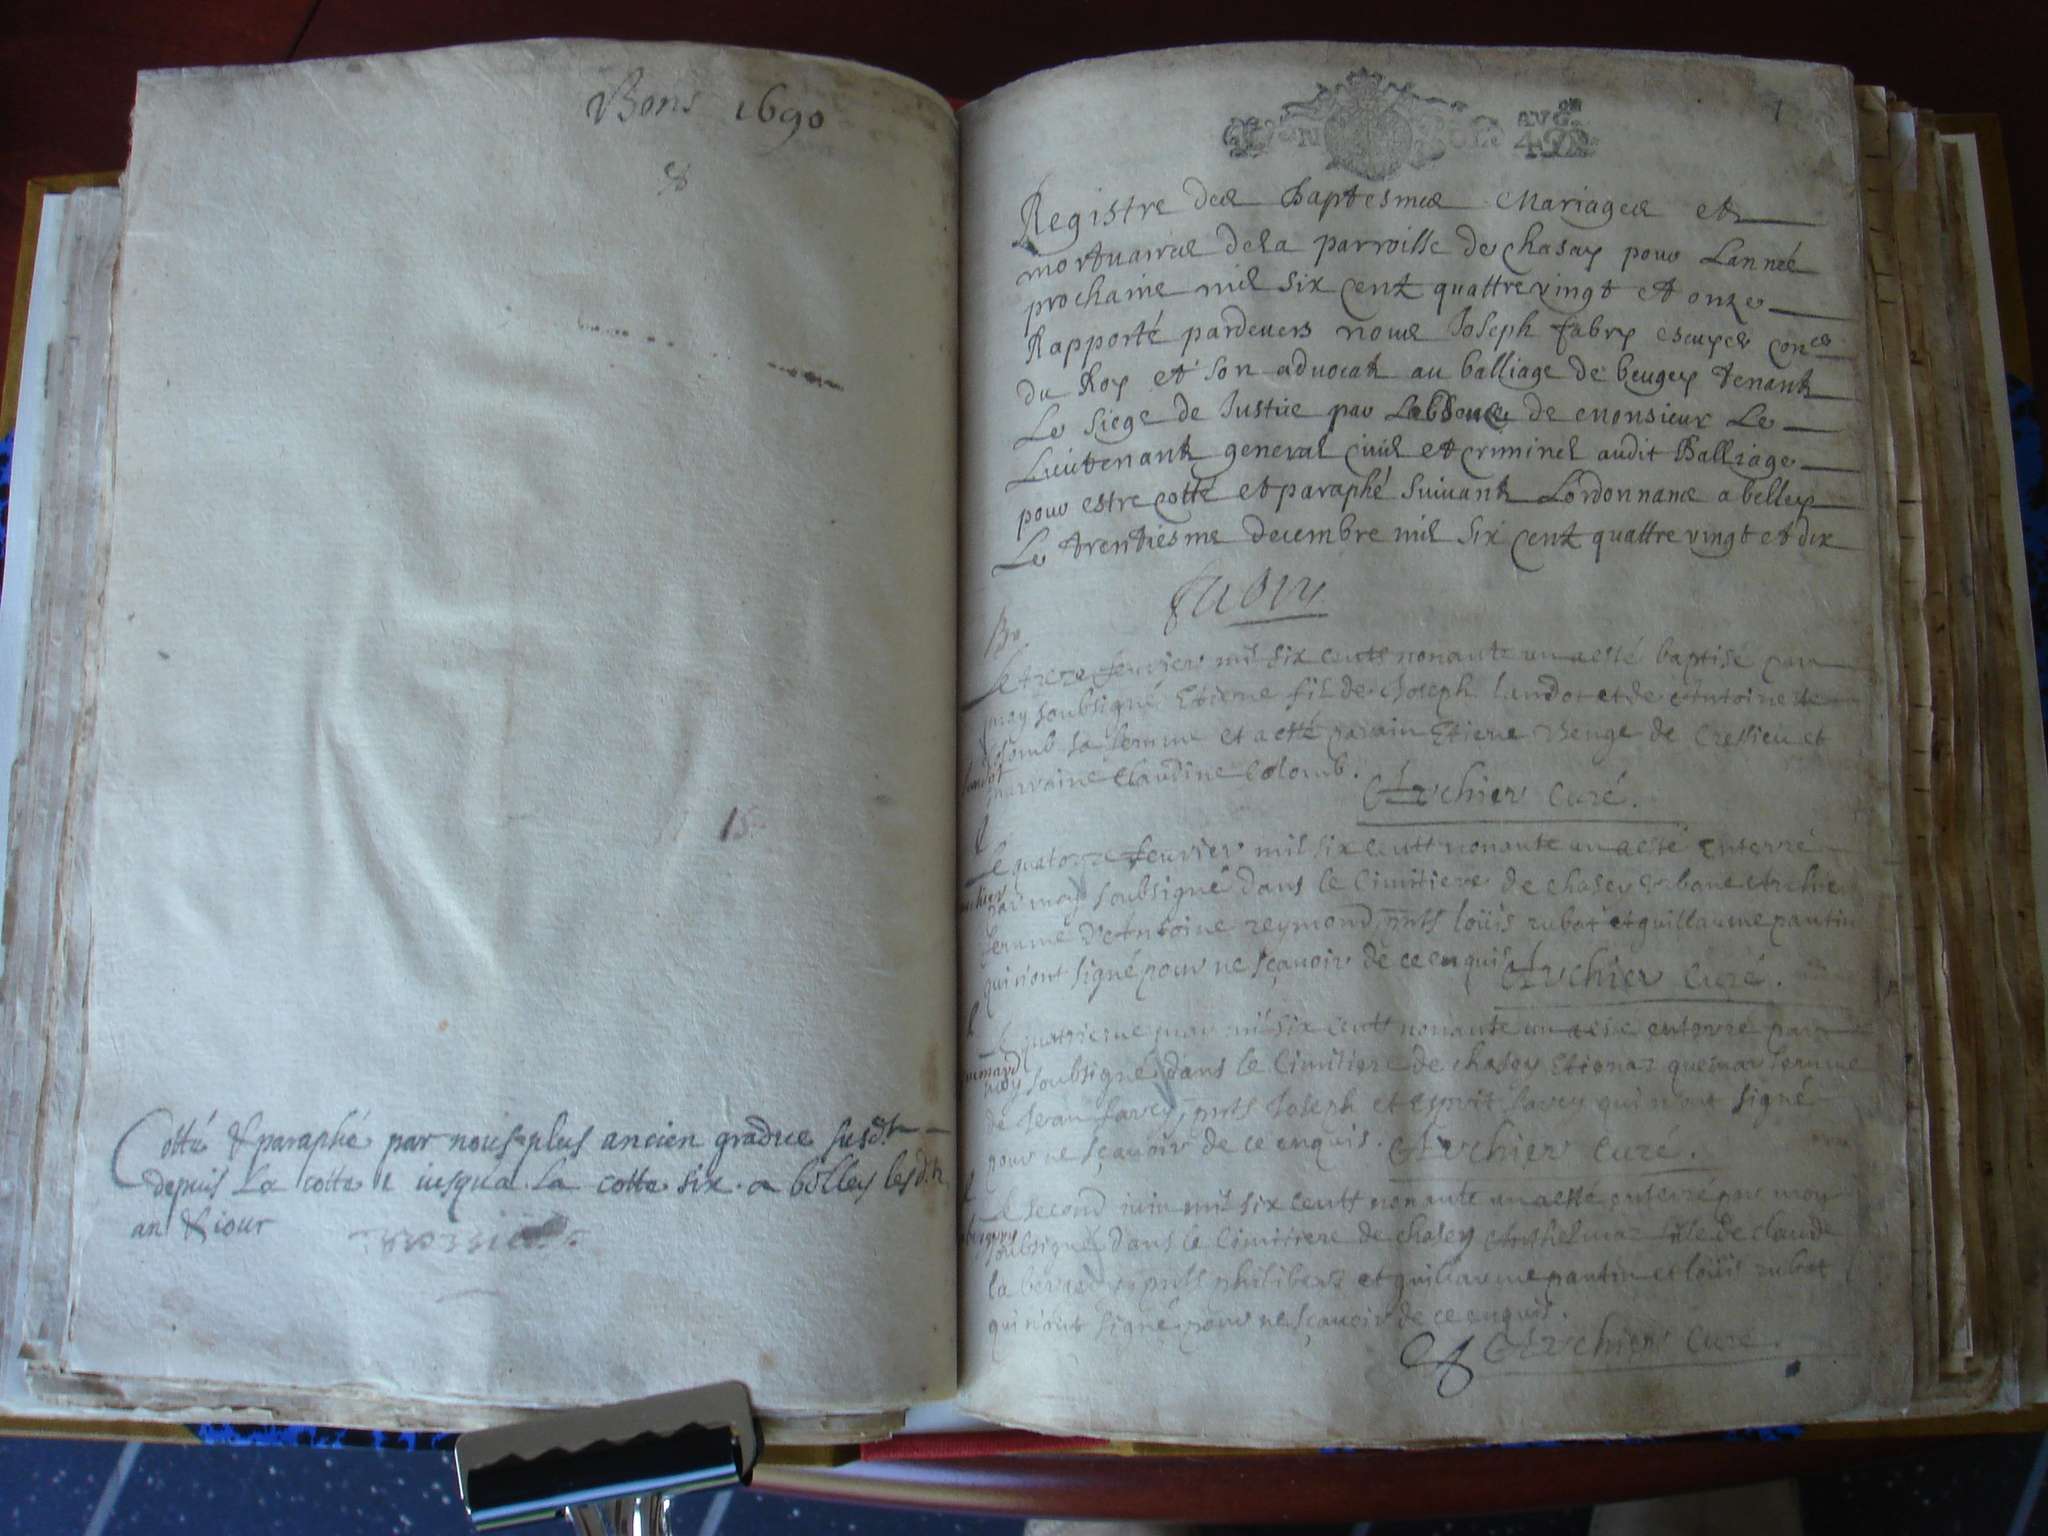 Bons 1690
Cotté & paraphé par nous plus ancien gradué susdt
depuis La cotte 1 iusqua La cotte six a belley lesd.
an & iour
1
Registre des Baptesmes Mariages et
mortuaires de la parroisse de chasay pour Lannéé
prochaine mil six centz quattre vingt et onze
Rapporté pardevers nous Joseph fabry escuyer coner
du Roy et son advocat au balliage de beugey tenant
Le siege de Justice par Labsence de monsieur Le
Lieutenant general civil et criminel audit Balliage
pour estre cotté et paraphé suivant Lordonnance a belley
Le trentiesme decembre mil six centz quattre vingt et dix
fabry
Le treze feuvrier mil six cents nonante un a esté baptisé par
moy soubsigné Etiene fil de Joseph landot et de Antoinette
Colomb sa femme et a esté parain Etiene Benge de Cressieu et
marraine Claudine Colomb.
Archier Curé.
Le quatorze feuvrier mil six centt nonante un a esté enterré
par moy soubsigné dans le Cimitiere de chasey Archie
femme d'Antoine reymond, pnts loüis rubat et guillaume pantin
qui n'ont signé pour ne sçavoir de ce enquis
Archier Curé.
Le quatrieme mil six centt nonante un a esté enterré par
moy soubsigné dans le Cimitiere de chasey Etienaz quemar femme
de Jean favey, pnts Joseph et esprit favey qui n'ont signé
pour ne sçavoir de ce enquis. Archier Curé.
Le second iuin mil six centt nonante un a esté enterré par moy
soubsigné dans le Cimitiere de chasey Anthelmaz fille de claude
pnts philibert et guillaume pantin et loüis rubat
qui n'ont signé pour ne sçavoir de ce enquis.
Archier Curé.